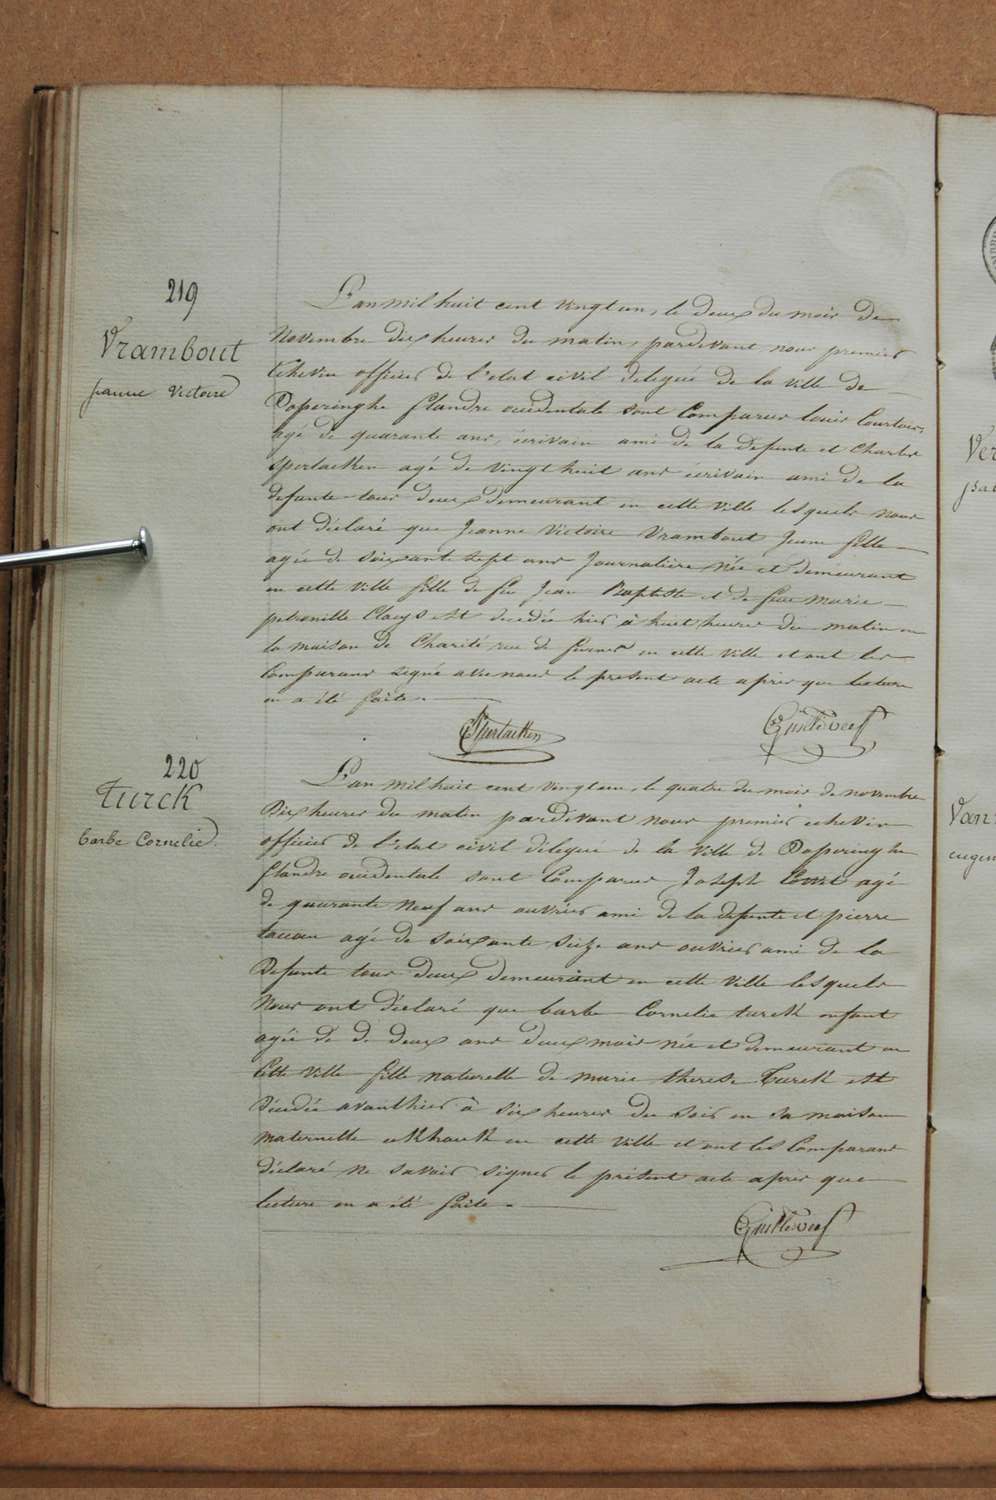 219
Vrambout
jeanne Victoire
L'an mil huit cent vingt un, le deux du mois de
Novembre dix heures du matin, pardevant nous premier
Echevin officier de l'état civil delegué de la ville de
Poperinghe flandre occidentale sont Comparus louis Courtois,
agé de quarante ans, écrivain ami de la defunte et Charles
Sperlaeken agé de vingt huit ans écrivain ami de la
defunte tous deux demeurant en cette ville lesquels nous
ont déclaré que Jeanne Victoire Vrambout Jeune fille
agée de soixante sept ans Journaliere Née et demeurant
en cette ville fille de feu Jean Baptiste et de feue Marie
petronille Claeys est decedée hier à huit heures du matin en
la maison de Charité rue de furnes en cette ville et ont les
Comparans signé avec nous le present acte apres que lecture
en a été faite.
Sperlaeken
220
Turck
barbe Cornelie
L'an mil huit cent vingt un, le quatre du mois de novembre
Dix heures du matin pardevant nous premier echevin
officier de l'etat civil delegué de la ville de Poperinghe
flandre occidentale sont Comparus Joseph agé
de quarante Neuf ans ouvrier ami de la defunte et pierre
agé de soixante seize ans ouvrier ami de la
Defunte tous deux demeurant en cette ville lesquels
Nous ont déclaré que barbe Cornelie turck enfant
agée de de deux ans deux mois née et demeurant en
Cette ville fille naturelle de marie therese Turck est
Décedée avanthier à six heures du soir en sa maison
maternelle en cette ville et ont les Comparans
déclaré ne savoir signer le présent acte apres que
lecture en a été faite.
Ver
Van
eugen